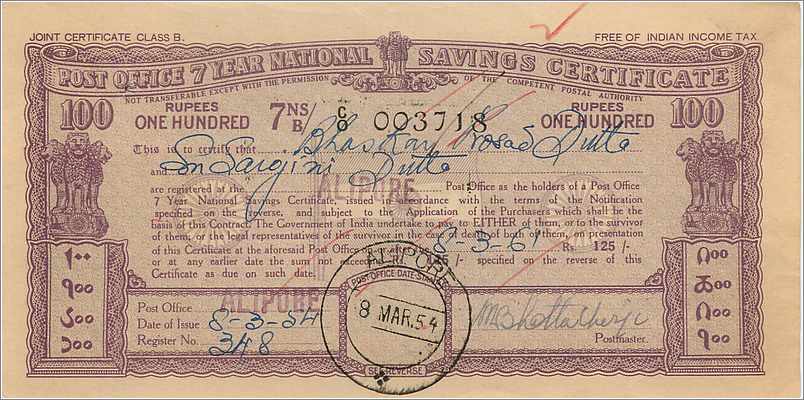 JOINT CERTIFICATE CLASS B.
FREE OF INDIAN INCOME TAX
POST OFFICE 7 YEAR NATIONAL SAVINGS CERTIFICATE
NOT TRANSFERABLE EXCEPT WITH THE PERMISSION OF THE COMPETENT POSTAL AUTHORITY
100 RUPEES ONE HUNDRED 7NS/B C/0 003718 RUPEES ONE HUNDRED 100
This is to certify that Bhaskar Prosad Dutta
and Sm Sargini Dutta
are registered at the ALIPORE Post Office as the holders of a Post Office
7 Year National Savings Certificate, issued in accordance with the terms of the Notification
specified on the reverse, and subject to the Application of the Purchasers which shall be the
basis of this Contract. The Government of India undertake to pay to EITHER of them, or to the survivor
of them, or to the legal representatives of the survivor in the case of death of both of them, on presentation
of this Certificate at the aforesaid Post Office 8-3-61 Rs. 125 /-
or at any earlier date the sum not exceeding Rs. 125 /- specified on the reverse of this
Certificate as due on such date.
१००
૧૦૦
১০০
Post Office ALIPORE
Date of Issue 8-3-54
Register No. 348
ALIPORE
POST OFFICE DATE-STAMP
8 MAR.54
SEE REVERSE
Postmaster.